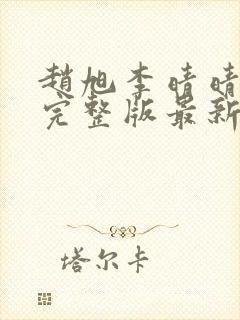 趙旭李晴晴
完整版最新
塔尔卡